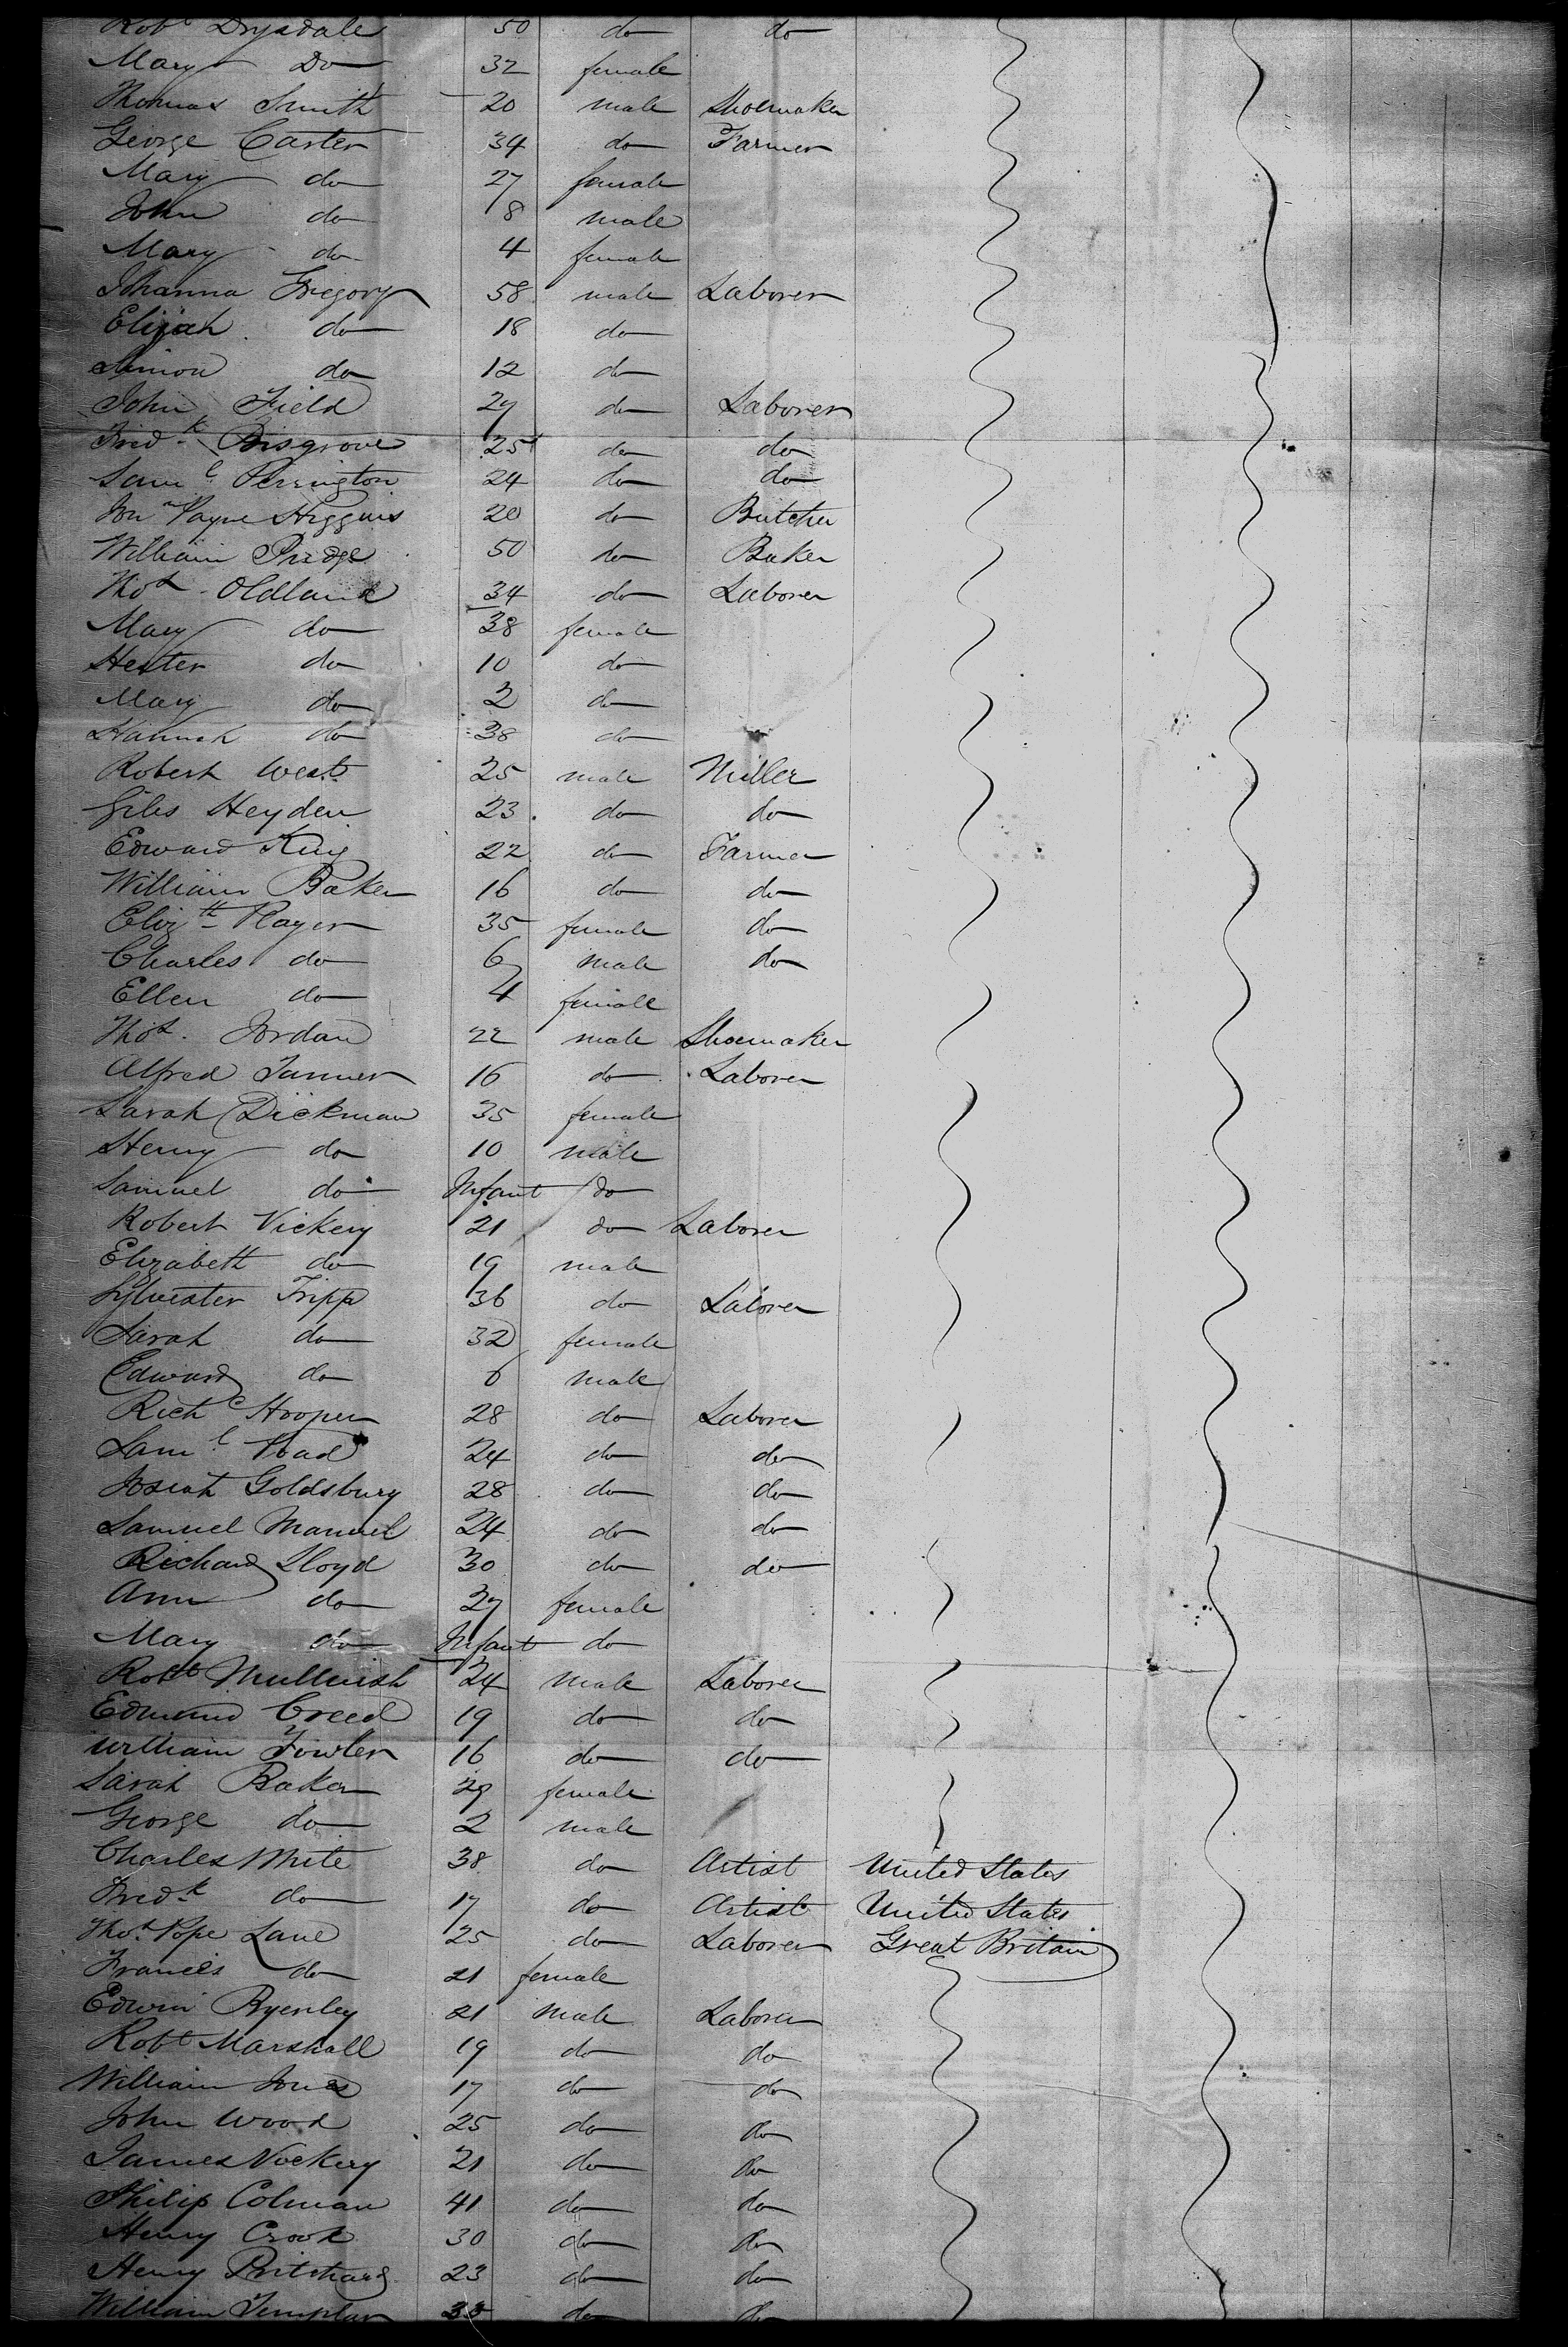 Robt Drysdale 50 do do
Mary Do 32 female
Thomas Smith 20 male Shoemaker
George Carter 34 do Farmer
Mary do 27 female
John do 8 male
Mary do 4 female
Johanna Gregory 58 male Laborer
Elijah do 18 do
Simon do 12 do
John Field 27 do Laborer
Fredk Disgrove 25 do do
Saml Perrington 24 do do
Jno Payne Higgins 20 do Butcher
William 50 do Baker
Thos Oldland 34 do Laborer
Mary do 38 female
Hester do 10 do
Mary do 2 do
Hannah do 38 do
Robert West 25 male Miller
Giles Heyden 23 do do
Edward King 22 do Farmer
William Baker 16 do do
Elizth Player 35 female do
Charles do 6 male do
Ellen do 4 female
Thos. Jordan 22 male Shoemaker
Alfred Tanner 16 do Laborer
Sarah Dickman 35 female
Henry do 10 male
Samuel do Infant do
Robert Vickery 21 do Laborer
Elizabeth do 19 male
Sylvester Tripp 36 do Laborer
Sarah do 32 female
Edward do 6 male
Richd Hooper 28 do Laborer
Saml Toad 24 do do
Josiah Goldsbury 28 do do
Samuel Manuel 24 do do
Richard Lloyd 30 do do
Ann do 27 female
Mary do Infant do
Robt Mullinish 24 male Laborer
Edmund Creed 19 do do
William Fowler 16 do do
Sarah Baker 29 female
George do 2 male
Charles White 38 do Artist United States
Fredk do 17 do Artist United States
Thos. Pope Lane 25 do Laborer Great Britain
Francis do 21 female
Edwin Byenley 21 male Laborer
Robt Marshall 19 do do
William Jones 17 do do
John Wood 25 do do
James Vockery 21 do do
Philip Colman 41 do do
Henry Crook 30 do do
Henry Pritchard 23 do do
William Templar 35 do do